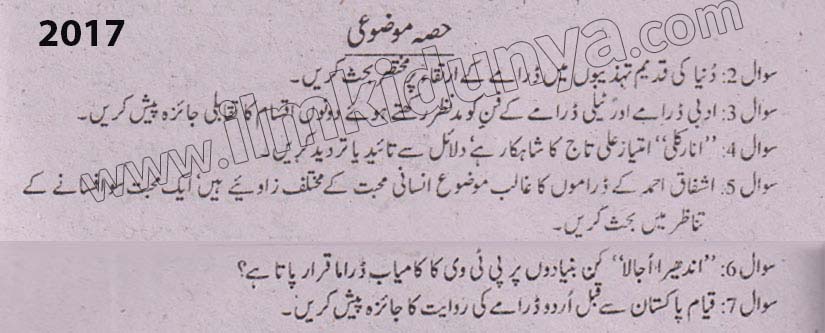 2017
حصہ موضوعی
سوال 2: دُنیا کی قدیم تہذیبوں میں ڈرامے کے ارتقاء پر مختصر بحث کریں۔
سوال 3: ادبی ڈرامے اور ٹیلی ڈرامے کے فن کو مدنظر رکھتے ہوئے دونوں اقسام کا تقابلی جائزہ پیش کریں۔
سوال 4: ”انارکلی“ امتیاز علی تاج کا شاہکار ہے‘ دلائل سے تائید یا تردید کریں۔
سوال 5: اشفاق احمد کے ڈراموں کا غالب موضوع انسانی محبت کے مختلف زاویئے ہیں ایک محبت سو افسانے کے
تناظر میں بحث کریں۔
سوال 6: ”اندھیرا اُجالا“ کن بنیادوں پر پی ٹی وی کا کامیاب ڈراما قرار پاتا ہے؟
سوال 7: قیام پاکستان سے قبل اُردو ڈرامے کی روایت کا جائزہ پیش کریں۔
www.ilmkidunya.com